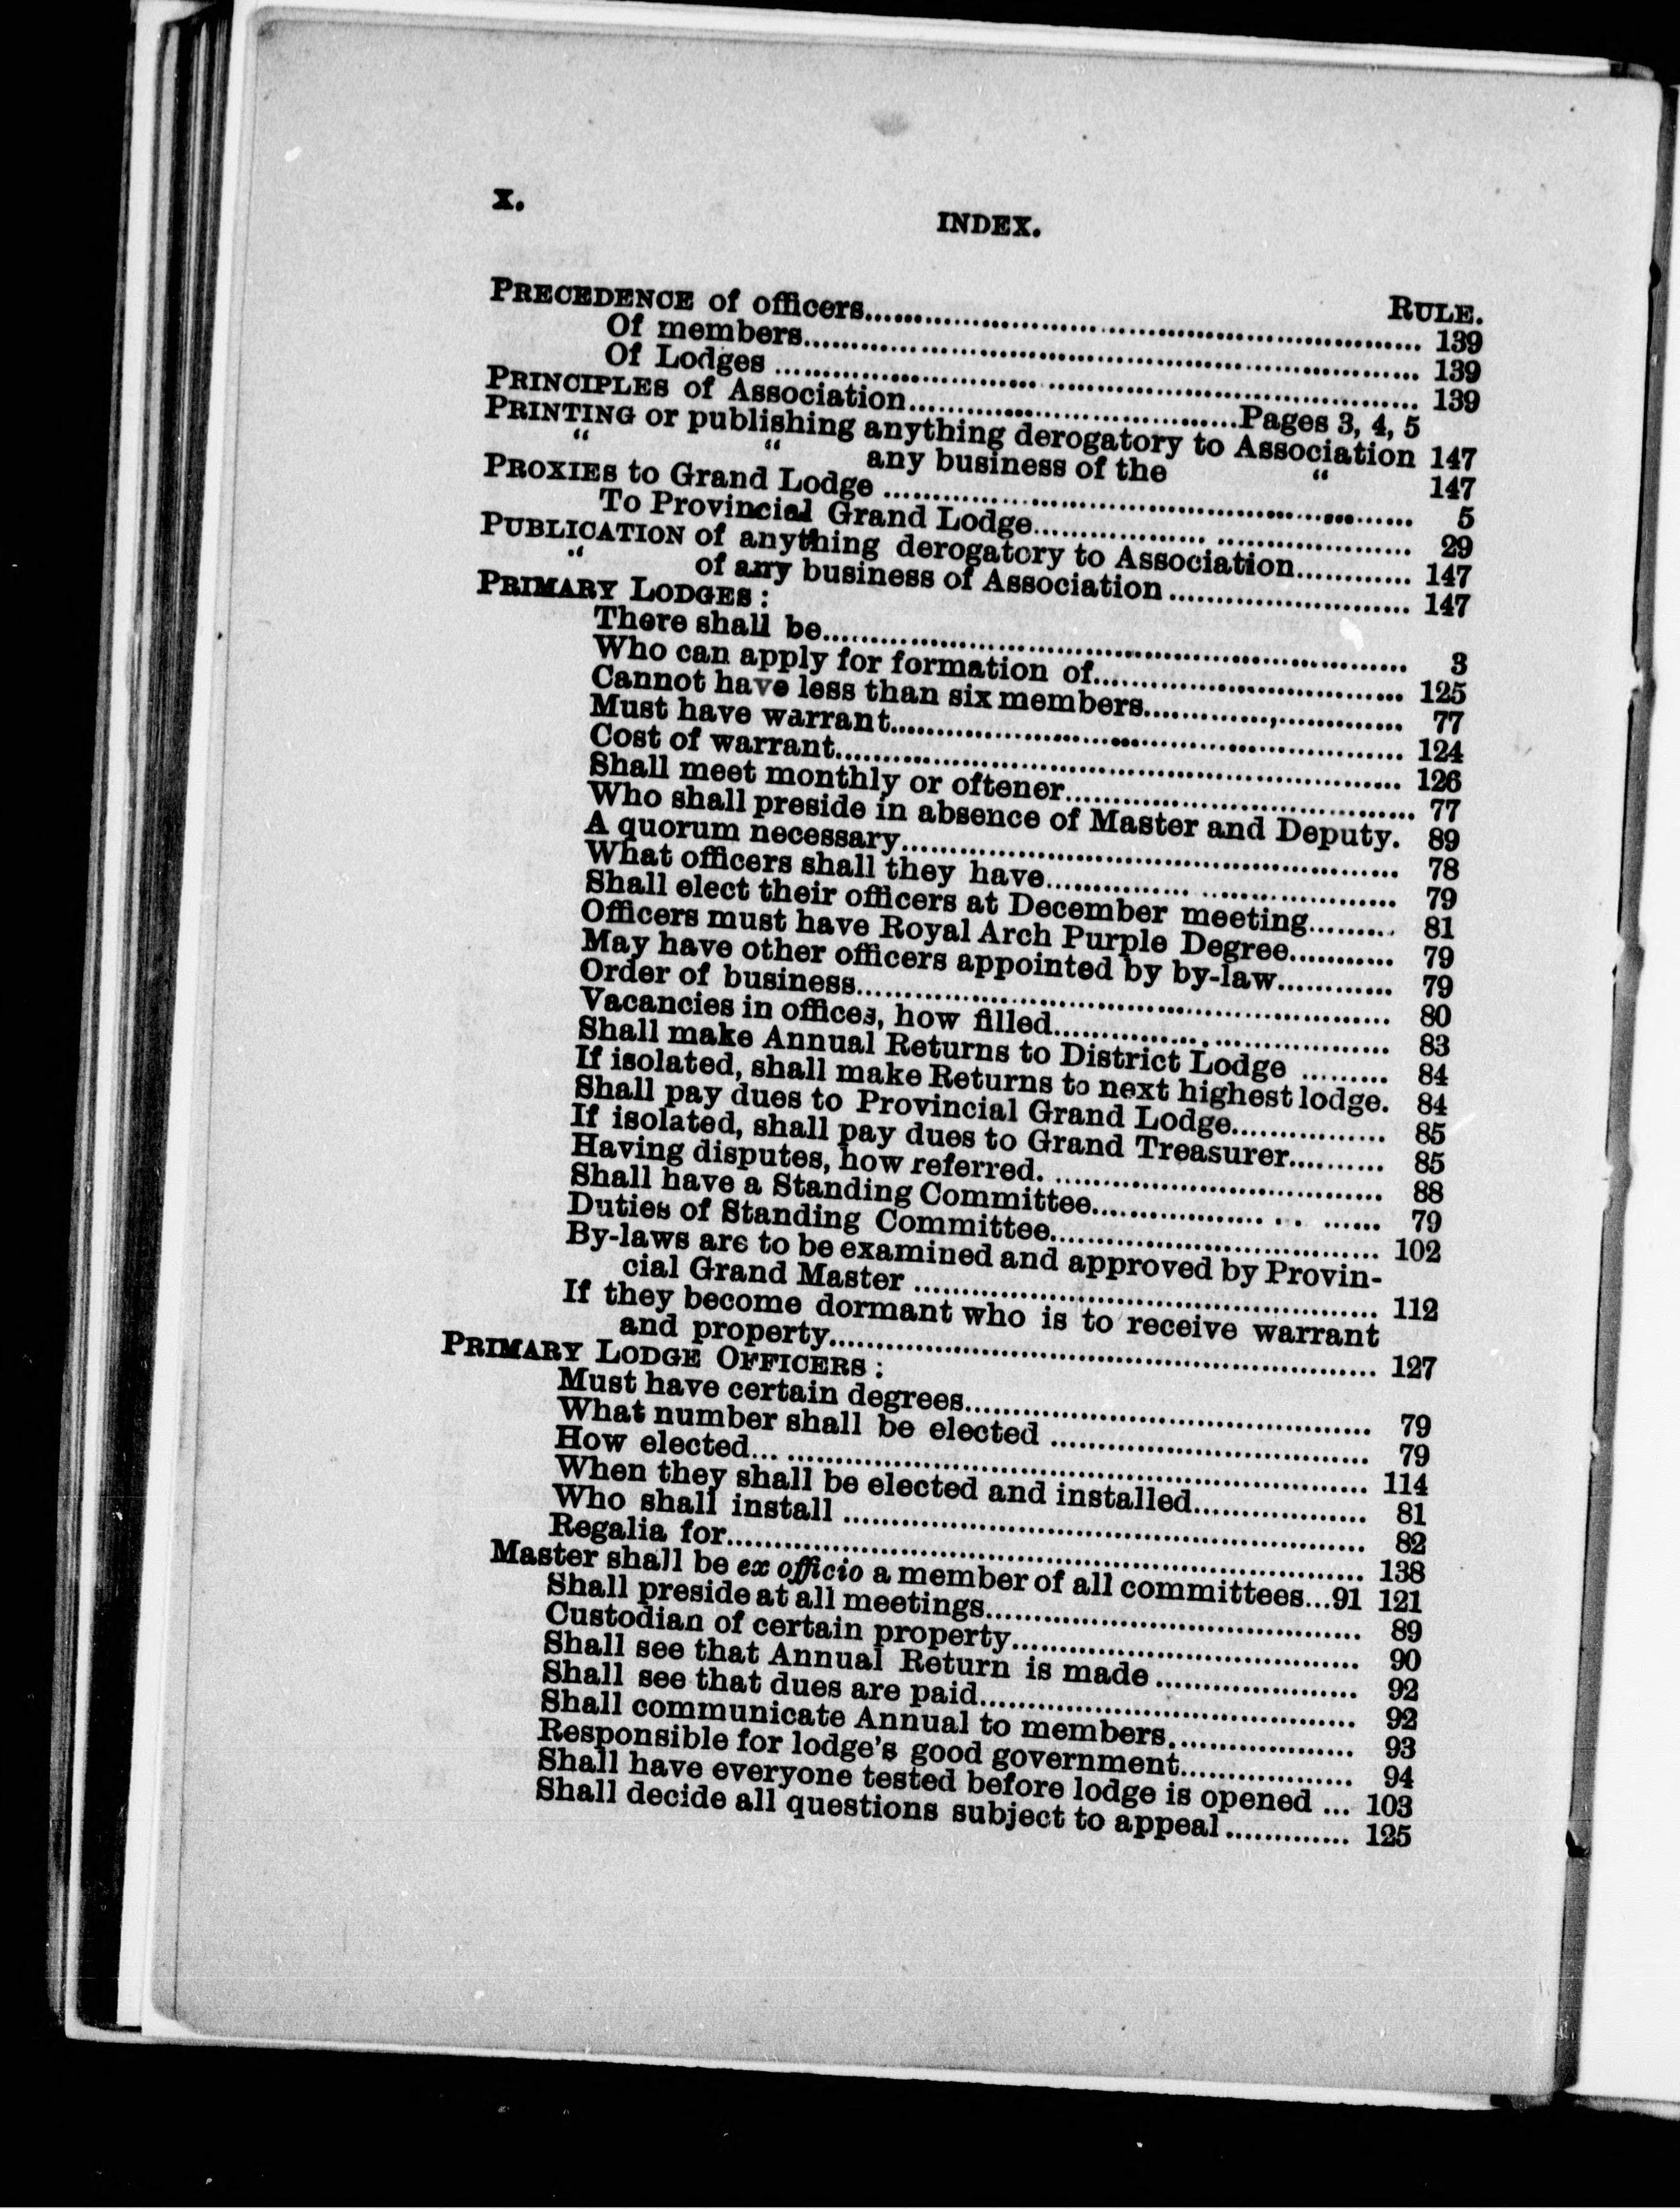 x.
INDEX.
RULE.
PRECEDENCE of officers........ 139
Of members........ 139
Of Lodges ........ 139
PRINCIPLES of Association........Pages 3, 4, 5
PRINTING or publishing anything derogatory to Association 147
“ “ any business of the “ 147
PROXIES to Grand Lodge ........ 5
To Provincial Grand Lodge........ 29
PUBLICATION of anything derogatory to Association........ 147
“ of any business of Association ........ 147
PRIMARY LODGES :
There shall be........ 3
Who can apply for formation of........ 125
Cannot have less than six members........ 77
Must have warrant........ 124
Cost of warrant........ 126
Shall meet monthly or oftener........ 77
Who shall preside in absence of Master and Deputy. 89
A quorum necessary........ 78
What officers shall they have........ 79
Shall elect their officers at December meeting........ 81
Officers must have Royal Arch Purple Degree........ 79
May have other officers appointed by by-law........ 79
Order of business........ 80
Vacancies in offices, how filled........ 83
Shall make Annual Returns to District Lodge ........ 84
If isolated, shall make Returns to next highest lodge. 84
Shall pay dues to Provincial Grand Lodge........ 85
If isolated, shall pay dues to Grand Treasurer........ 85
Having disputes, how referred. ........ 88
Shall have a Standing Committee........ 79
Duties of Standing Committee........ 102
By-laws are to be examined and approved by Provin-
cial Grand Master ........ 112
If they become dormant who is to receive warrant
and property........ 127
PRIMARY LODGE OFFICERS :
Must have certain degrees........ 79
What number shall be elected ........ 79
How elected........ 114
When they shall be elected and installed........ 81
Who shall install ........ 82
Regalia for........ 138
Master shall be ex officio a member of all committees...91 121
Shall preside at all meetings........ 89
Custodian of certain property........ 90
Shall see that Annual Return is made ........ 92
Shall see that dues are paid........ 92
Shall communicate Annual to members........ 93
Responsible for lodge's good government........ 94
Shall have everyone tested before lodge is opened ... 103
Shall decide all questions subject to appeal ........ 125